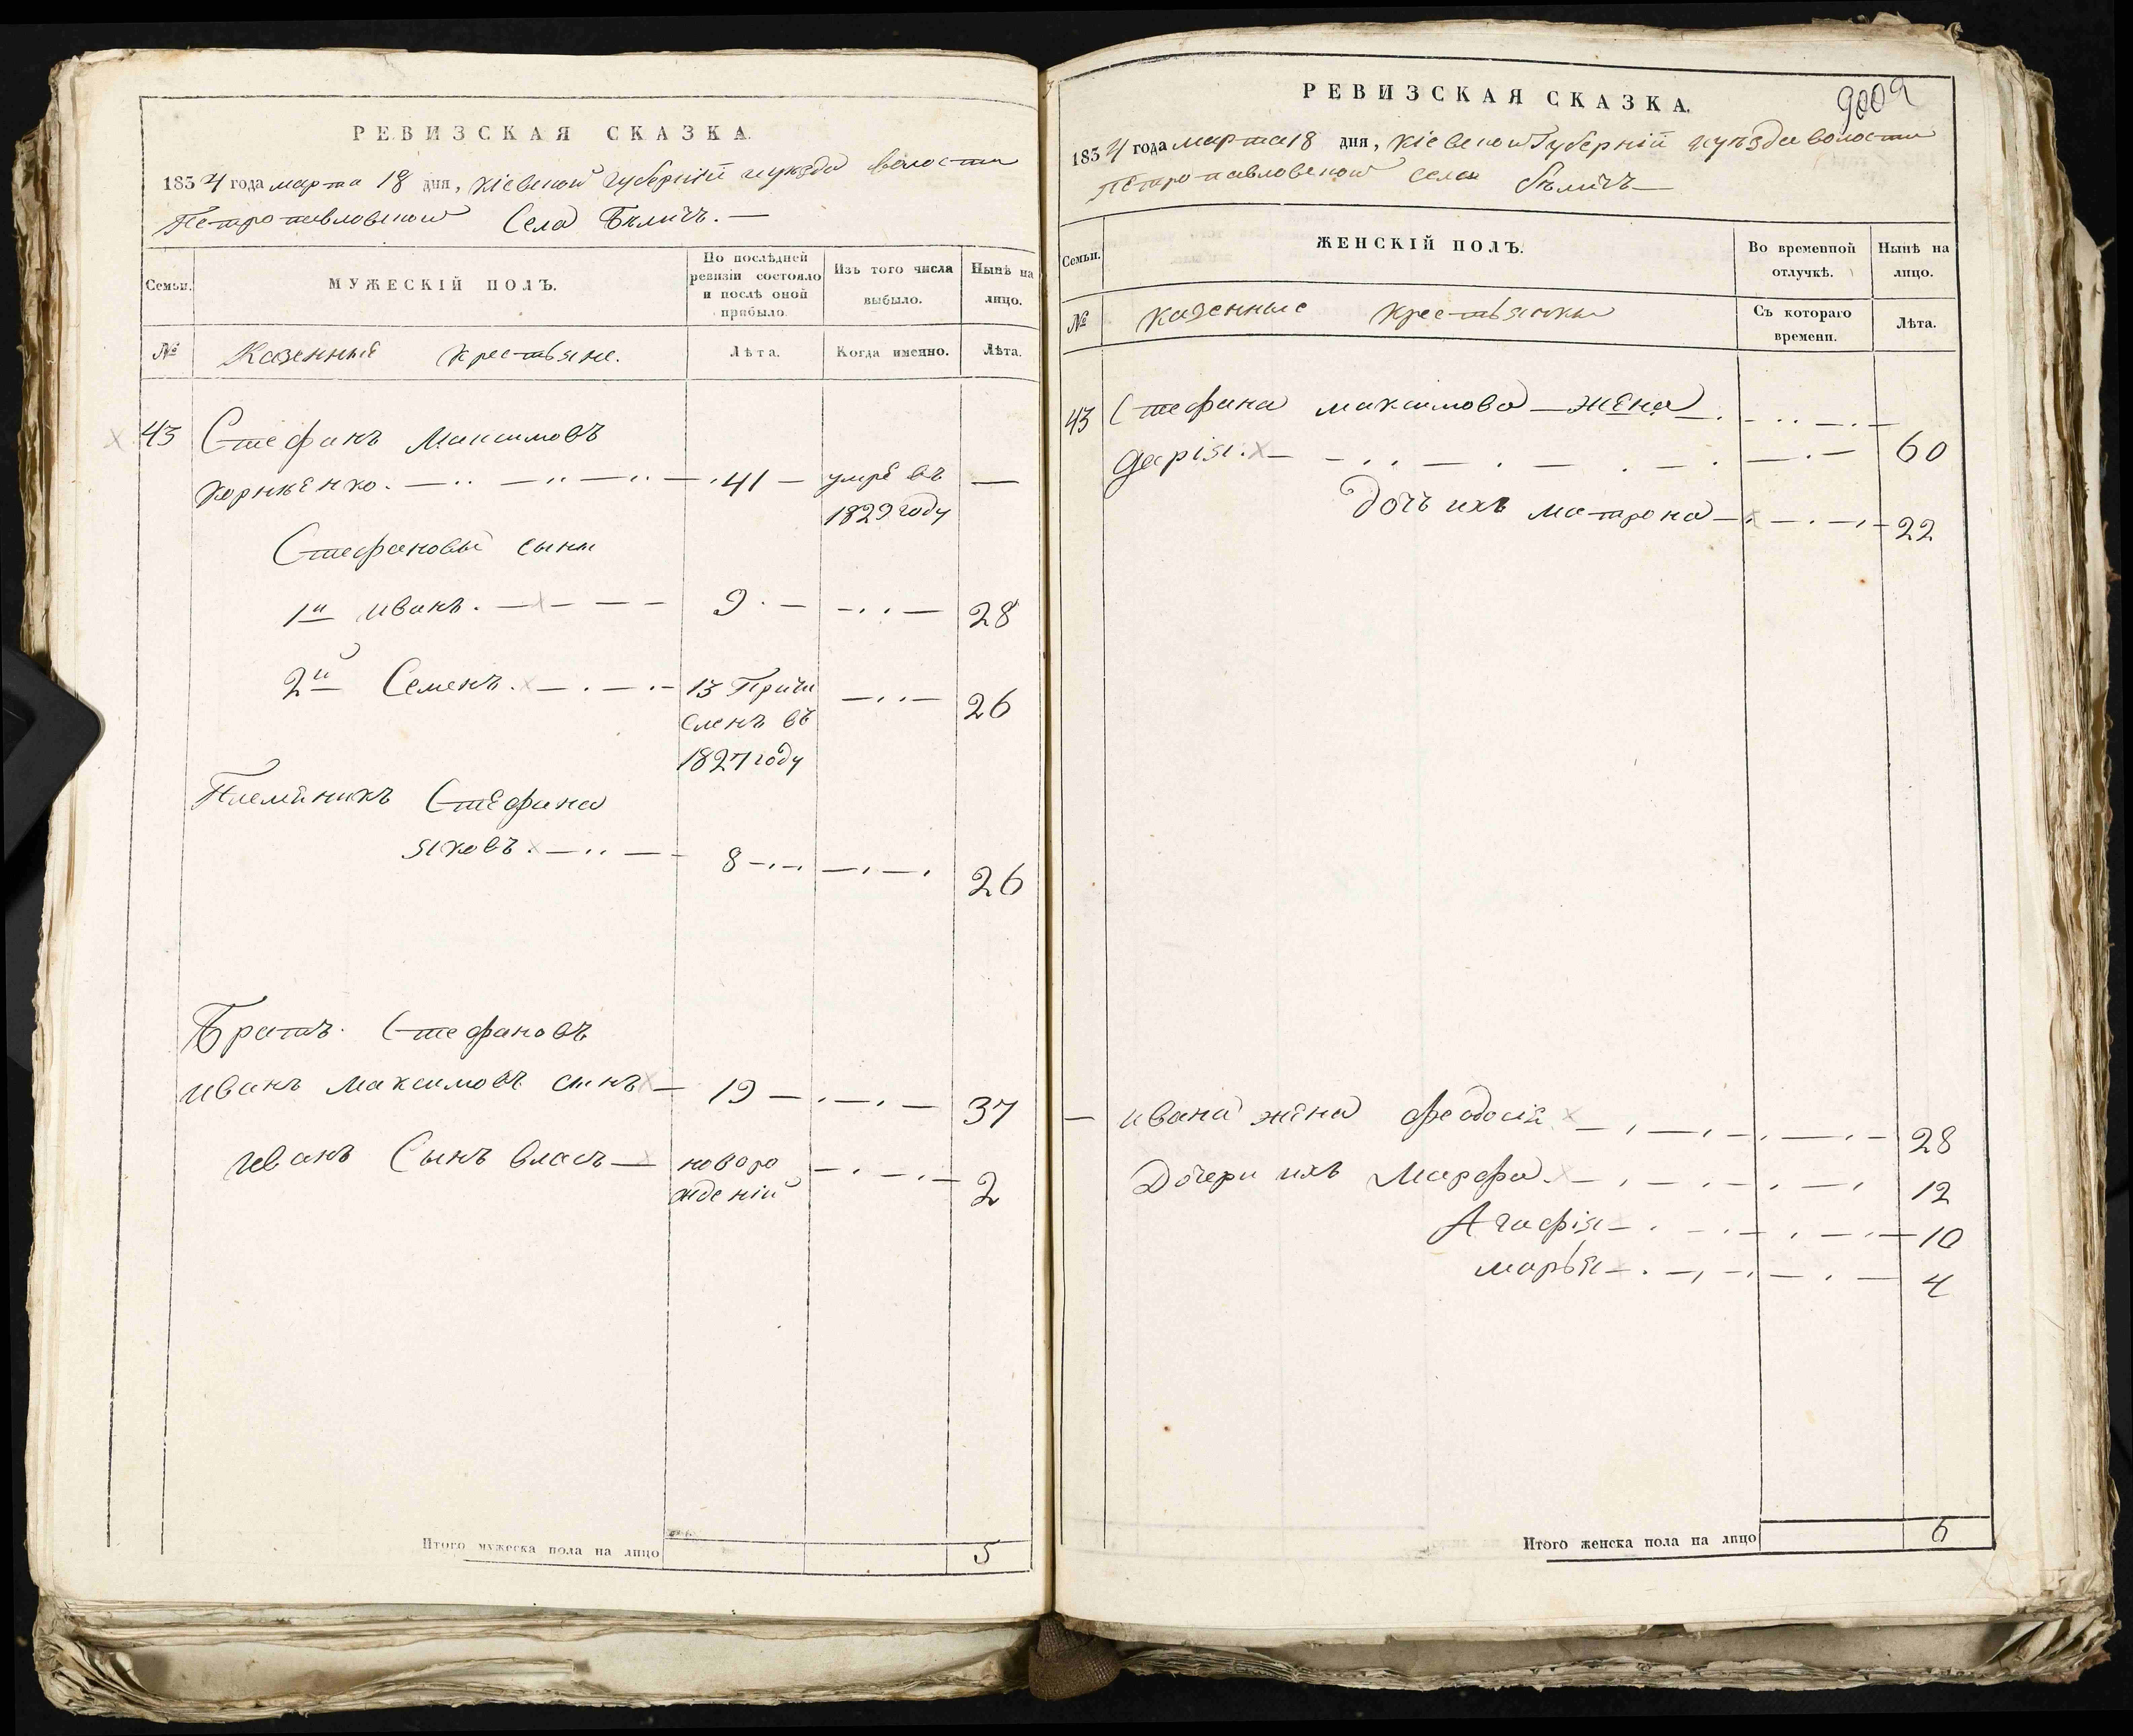 РЕВИЗСКАЯ СКАЗКА.
1834 года марта 18 дня, Кіевской губерніи и уѣзда волости
Петропавловской Села Бѣличъ. —
Семьи. МУЖЕСКІЙ ПОЛЪ. По послѣдней ревизіи состояло и послѣ оной прибыло. Изъ того числа выбыло. Нынѣ на лицо.
№ Казенныя крестьяне. Лѣта. Когда именно. Лѣта.
43 Стефанъ Максимовъ
Корнѣенко. 41 умре въ —
1829 году
Стефановы сыны
1й Иванъ. 9 28
2й Семенъ. 13 Причи 26
сленъ въ
1827 году
Племяникъ Стефана
Яковъ. 8 26
Братъ Стефановъ
Иванъ Максимовъ сынъ 19 37
Иванъ Сынъ Власъ новоро 2
жденій
Итого мужеска пола на лицо 5
РЕВИЗСКАЯ СКАЗКА.
1834 года марта 18 дня, Кіевской Губерніи и уѣзда волости
Петропавловской села Бѣличъ —
Семьи. ЖЕНСКІЙ ПОЛЪ. Во временной отлучкѣ. Нынѣ на лицо.
№ Казенные крестьянки Съ котораго времени. Лѣта.
43 Стефана Максимова — жена
Дарія. 60
Дочь ихъ Матрона 22
— Ивана жена Феодосія 28
Дочери ихъ Марфа 12
Агафія 10
Марья 4
Итого женска пола на лицо 6